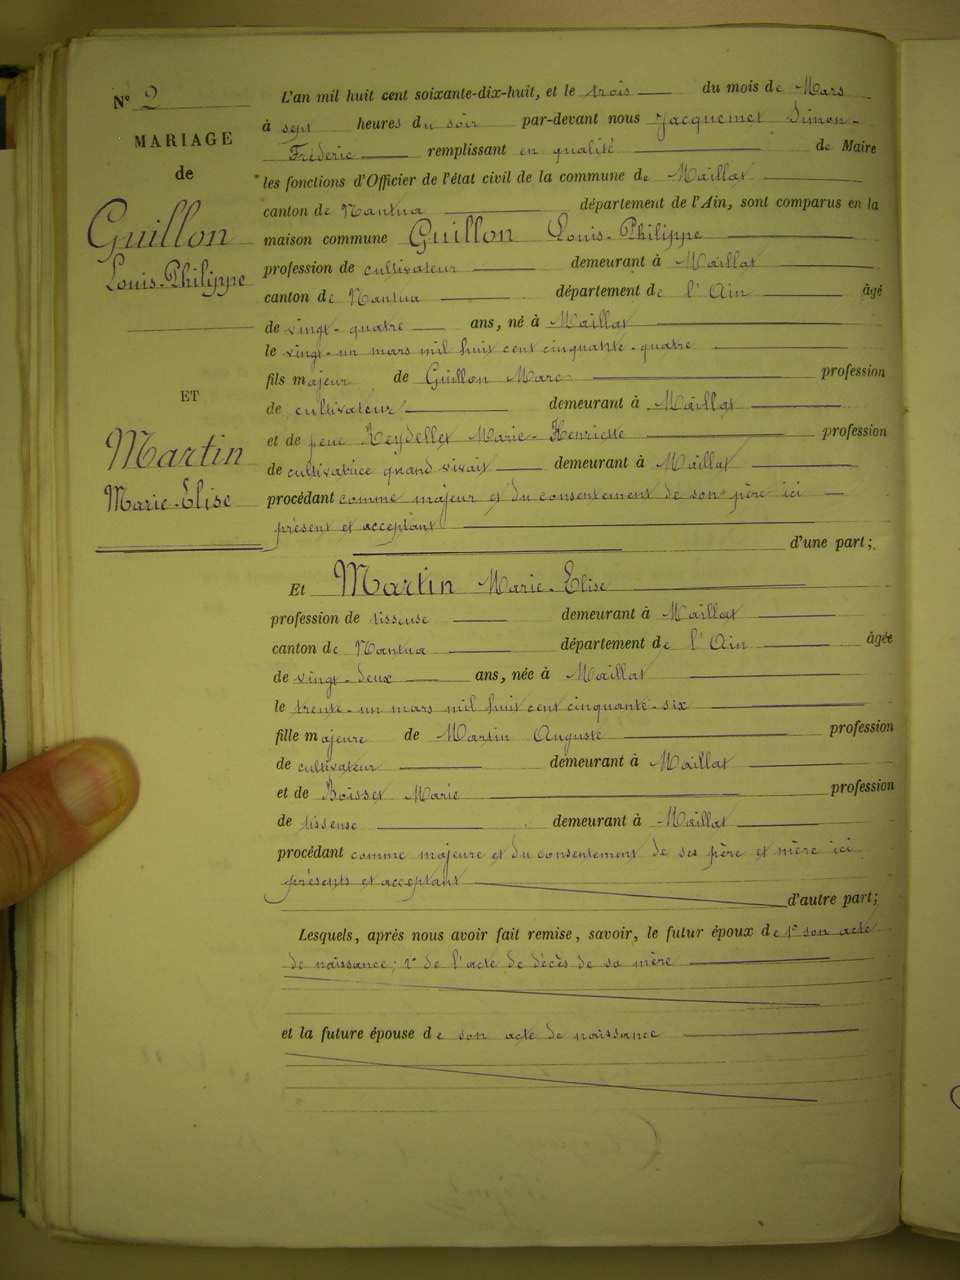 N° 2
MARIAGE
de
Guillon
Louis-Philippe
ET
Martin
Marie-Elise
L'an mil huit cent soixante-dix-huit, et le trois du mois de Mars
à sept heures du soir par-devant nous Jacquemet Simon-
Fréderic remplissant en qualité de Maire
les fonctions d'Officier de l'état civil de la commune de Maillat
canton de Nantua département de l'Ain, sont comparus en la
maison commune Guillon Louis-Philippe
profession de cultivateur demeurant à Maillat
canton de Nantua département de l'Ain âgé
de vingt-quatre ans, né à Maillat
le vingt-un mars mil huit cent cinquante-quatre
fils majeur de Guillon Marc profession
de cultivateur demeurant à Maillat
et de feue Reydellet Marie-Henriette profession
de cultivatrice quand vivait demeurant à Maillat
procédant comme majeur et du consentement de son père ici
présent et acceptant
d'une part;
Et Martin Marie-Elise
profession de tisseuse demeurant à Maillat
canton de Nantua département de l'Ain âgée
de vingt-deux ans, née à Maillat
le trente-un mars mil huit cent cinquante-six
fille majeure de Martin Auguste profession
de cultivateur demeurant à Maillat
et de Boisset Marie profession
de tisseuse demeurant à Maillat
procédant comme majeure et du consentement de ses père et mère ici
présents et acceptant
d'autre part;
Lesquels, après nous avoir fait remise, savoir, le futur époux de 1° son acte
de naissance; 2° de l'acte de décès de sa mère
et la future épouse de son acte de naissance